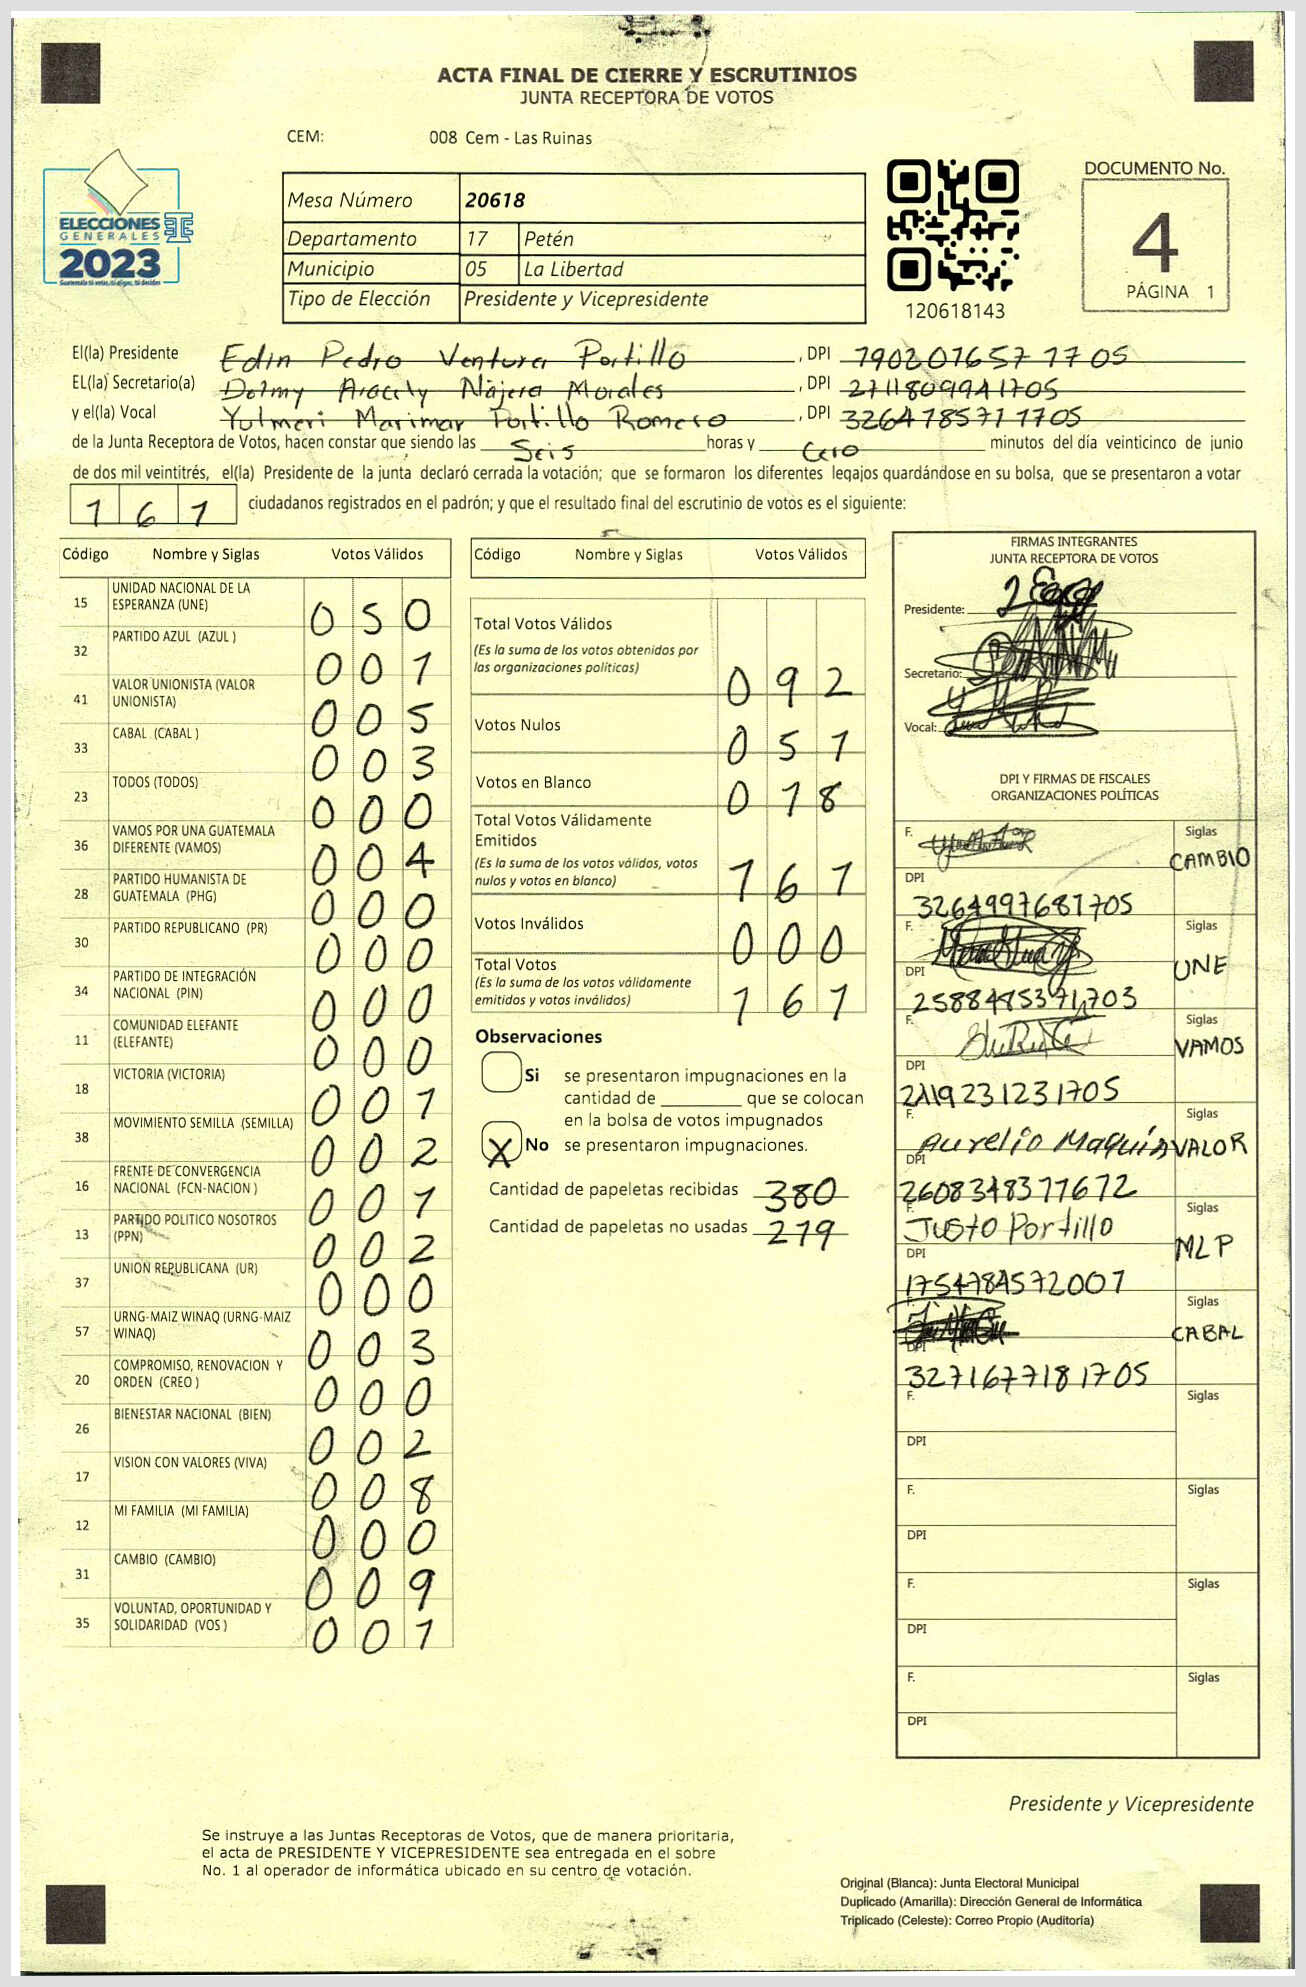 ACTA FINAL DE CIERRE Y ESCRUTINIOS
JUNTA RECEPTORA DE VOTOS
CEM: 008 Cem - Las Ruinas
ELECCIONES
GENERALES
2023
Mesa Número 20618
Departamento 17 Petén
Municipio 05 La Libertad
Tipo de Elección Presidente y Vicepresidente
120618143
DOCUMENTO No.
4
PÁGINA 1
El(la) Presidente Edin Pedro Ventura Portillo, DPI 1902016571705
EL(la) Secretario(a) Dolmy Aracely Nájera Morales, DPI 2711809941705
y el(la) Vocal Yulmeri Marimar Portillo Romero, DPI 3264785711705
de la Junta Receptora de Votos, hacen constar que siendo las Seis horas y Cero minutos del día veinticinco de junio
de dos mil veintitrés, el(la) Presidente de la junta declaró cerrada la votación; que se formaron los diferentes legajos quardándose en su bolsa, que se presentaron a votar
161 ciudadanos registrados en el padrón; y que el resultado final del escrutinio de votos es el siguiente:
Código Nombre y Siglas Votos Válidos
15 UNIDAD NACIONAL DE LA ESPERANZA (UNE) 050
32 PARTIDO AZUL (AZUL ) 001
41 VALOR UNIONISTA (VALOR UNIONISTA) 005
33 CABAL (CABAL ) 003
23 TODOS (TODOS) 000
36 VAMOS POR UNA GUATEMALA DIFERENTE (VAMOS) 004
28 PARTIDO HUMANISTA DE GUATEMALA (PHG) 000
30 PARTIDO REPUBLICANO (PR) 000
34 PARTIDO DE INTEGRACIÓN NACIONAL (PIN) 000
11 COMUNIDAD ELEFANTE (ELEFANTE) 000
18 VICTORIA (VICTORIA) 001
38 MOVIMIENTO SEMILLA (SEMILLA) 002
16 FRENTE DE CONVERGENCIA NACIONAL (FCN-NACION ) 001
13 PARTIDO POLITICO NOSOTROS (PPN) 002
37 UNION REPUBLICANA (UR) 000
57 URNG-MAIZ WINAQ (URNG-MAIZ WINAQ) 003
20 COMPROMISO, RENOVACION Y ORDEN (CREO ) 000
26 BIENESTAR NACIONAL (BIEN) 002
17 VISION CON VALORES (VIVA) 008
12 MI FAMILIA (MI FAMILIA) 000
31 CAMBIO (CAMBIO) 009
35 VOLUNTAD, OPORTUNIDAD Y SOLIDARIDAD (VOS ) 001
Código Nombre y Siglas Votos Válidos
Total Votos Válidos 092
(Es la suma de los votos obtenidos por
las organizaciones políticas)
Votos Nulos 051
Votos en Blanco 018
Total Votos Válidamente
Emitidos 161
(Es la suma de los votos válidos, votos
nulos y votos en blanco)
Votos Inválidos 000
Total Votos 161
(Es la suma de los votos válidamente
emitidos y votos inválidos)
Observaciones
Si se presentaron impugnaciones en la
cantidad de ________ que se colocan
en la bolsa de votos impugnados
X No se presentaron impugnaciones.
Cantidad de papeletas recibidas 380
Cantidad de papeletas no usadas 219
FIRMAS INTEGRANTES
JUNTA RECEPTORA DE VOTOS
Presidente:
Secretario:
Vocal:
DPI Y FIRMAS DE FISCALES
ORGANIZACIONES POLÍTICAS
F. Siglas CAMBIO
DPI 3264997681705
F. Siglas UNE
DPI 2588485371703
F. Siglas VAMOS
DPI 2119231231705
F. Aurelio Maquín Siglas VALOR
DPI 2608348371672
F. Justo Portillo Siglas MLP
DPI 1754784572001
F. Siglas CABAL
DPI 3271677181705
F. Siglas
DPI
F. Siglas
DPI
F. Siglas
DPI
F. Siglas
DPI
Presidente y Vicepresidente
Se instruye a las Juntas Receptoras de Votos, que de manera prioritaria,
el acta de PRESIDENTE Y VICEPRESIDENTE sea entregada en el sobre
No. 1 al operador de informática ubicado en su centro de votación.
Original (Blanca): Junta Electoral Municipal
Duplicado (Amarilla): Dirección General de Informática
Triplicado (Celeste): Correo Propio (Auditoría)